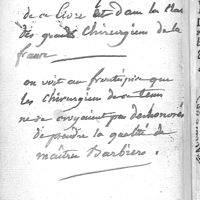 de ce livre est dans la Main
des grands Chirurgiens de la
france
on voit au frontispice que
les Chirurgiens de ce tems
ne se croyaient pas deshonorés
de prendre la qualité de
maître Barbiers.